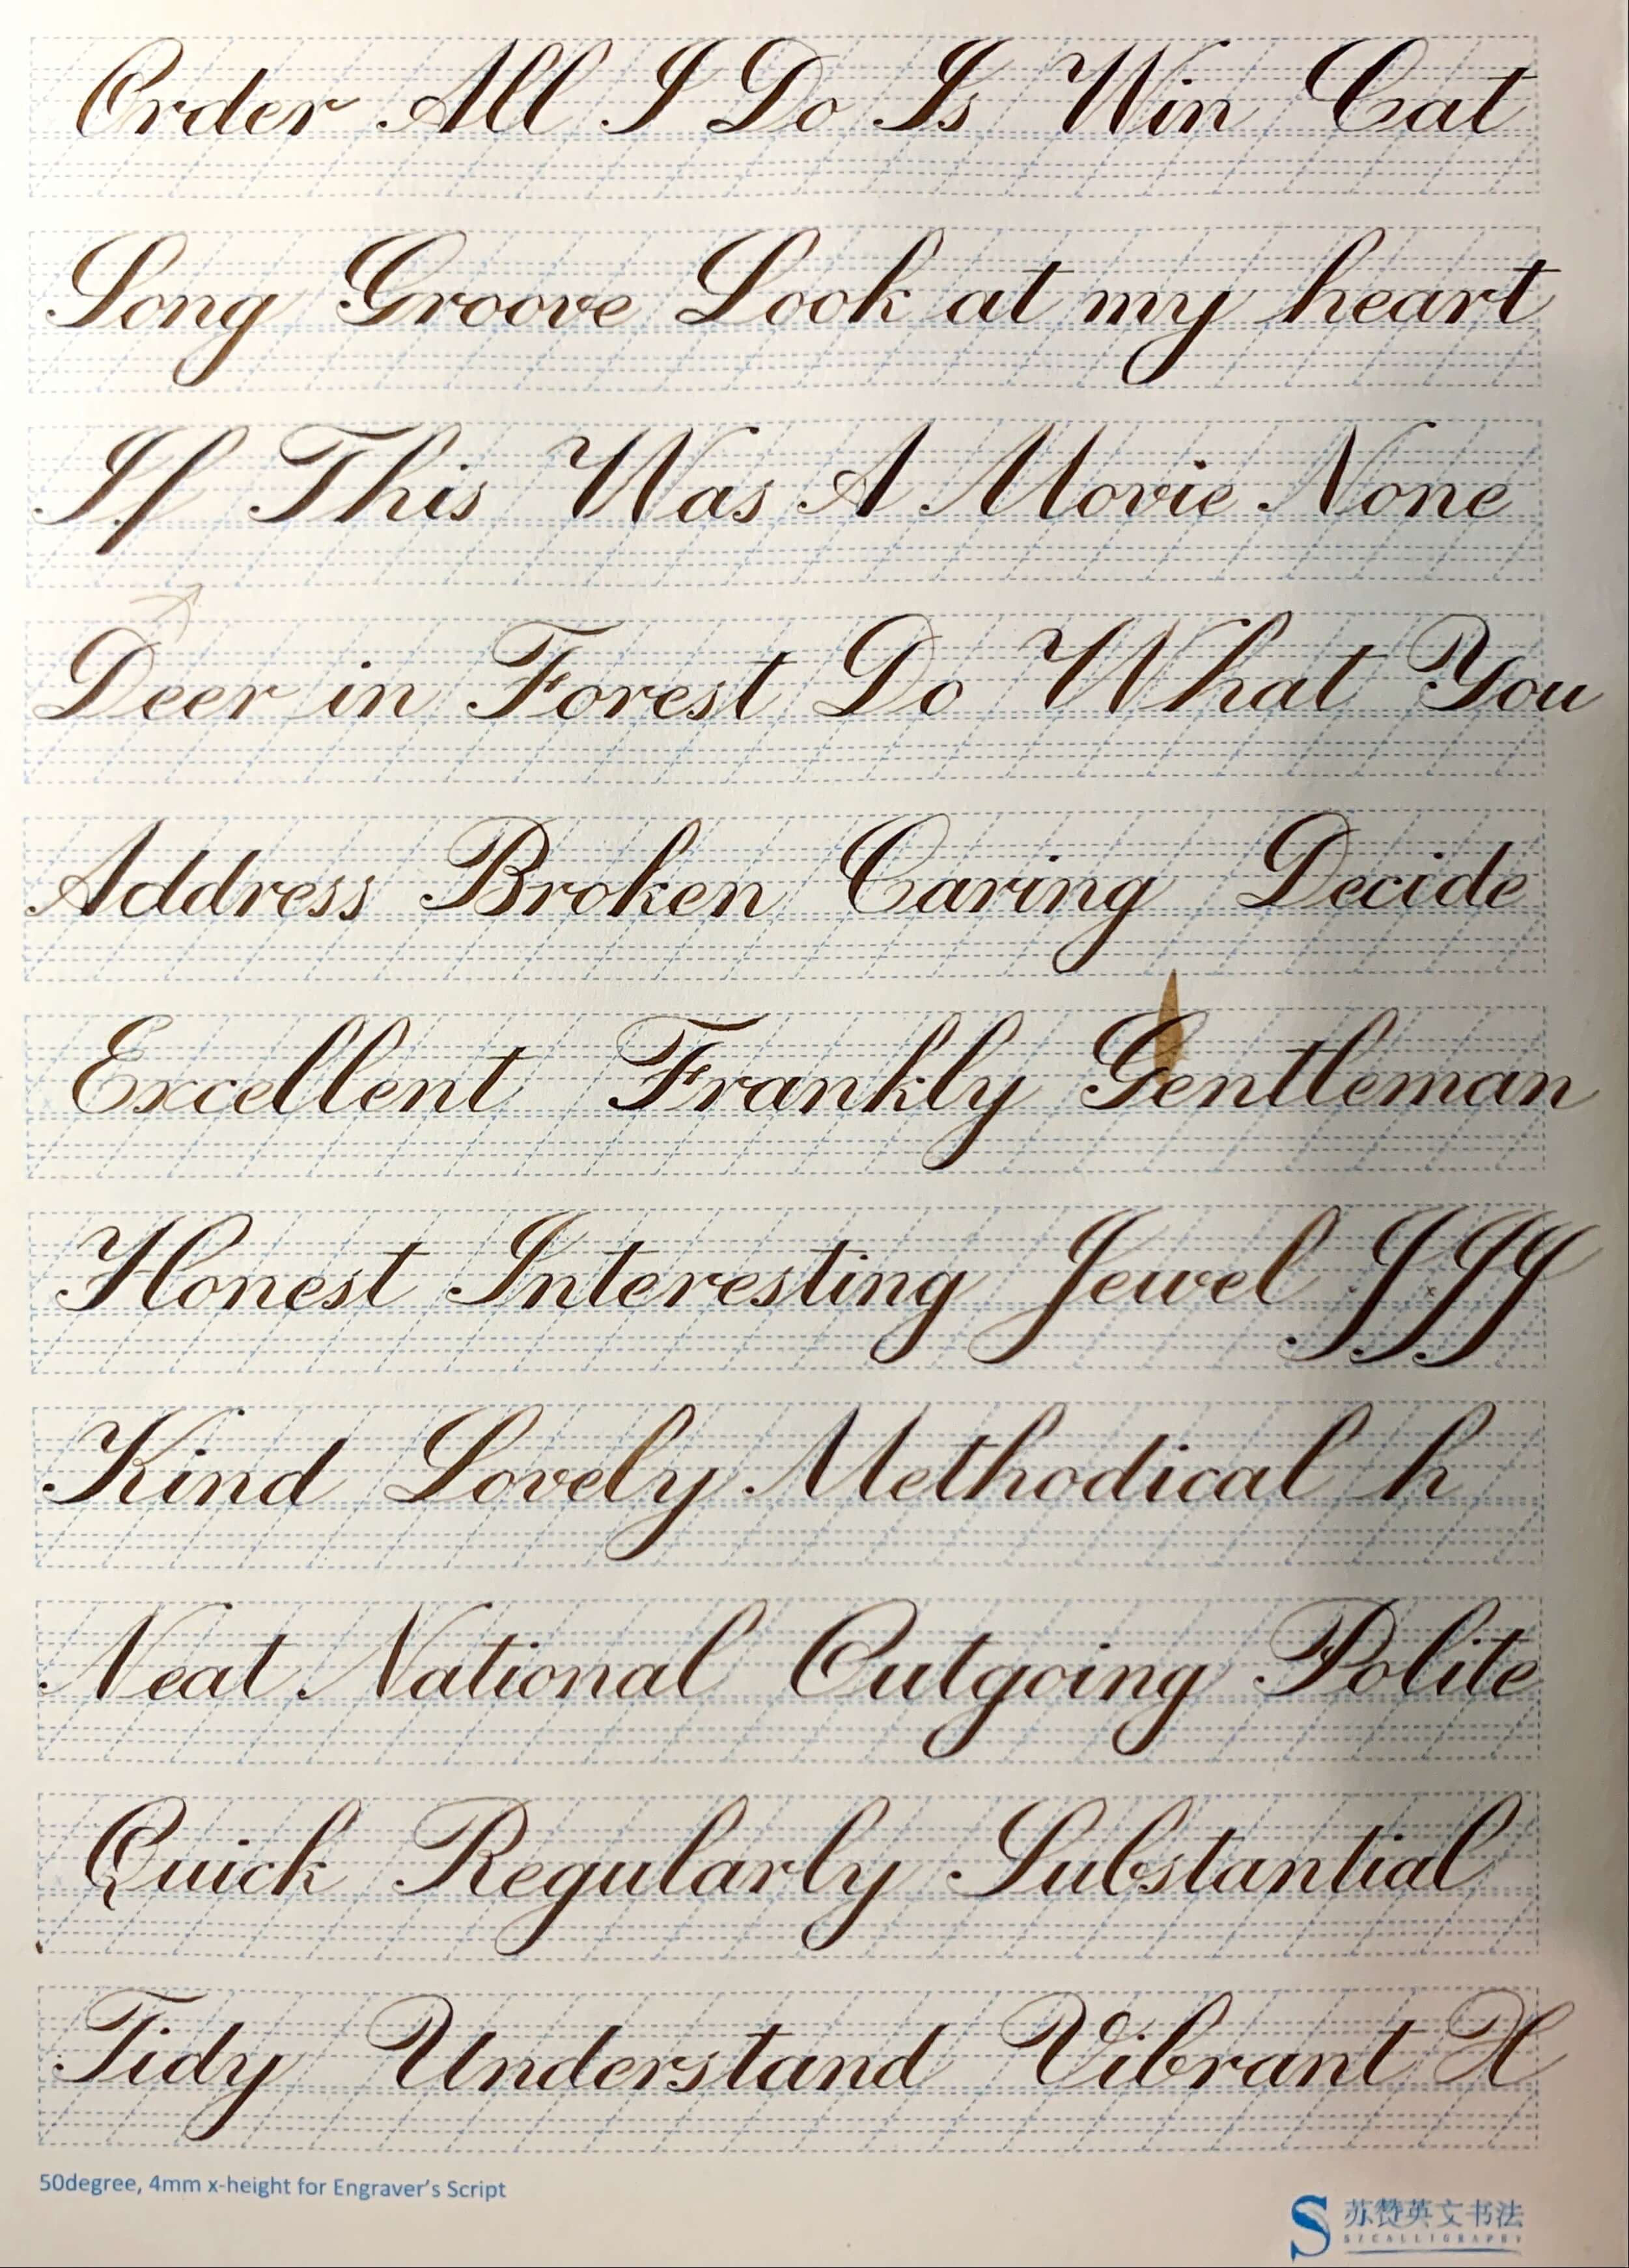 Order All I Do Is Win Cat
Song Groove Look at my heart
If This Was A Movie None
Deer in Forest Do What You
Address Broken Caring Decide
Excellent Frankly Gentleman
Honest Interesting Jewel J J J
Kind Lovely Methodical h
Neat National Outgoing Polite
Quick Regularly Substantial
Tidy Understand Vibrant X
50degree, 4mm x-height for Engraver's Script
S 苏赞英文书法
SZCALLIGRAPHY